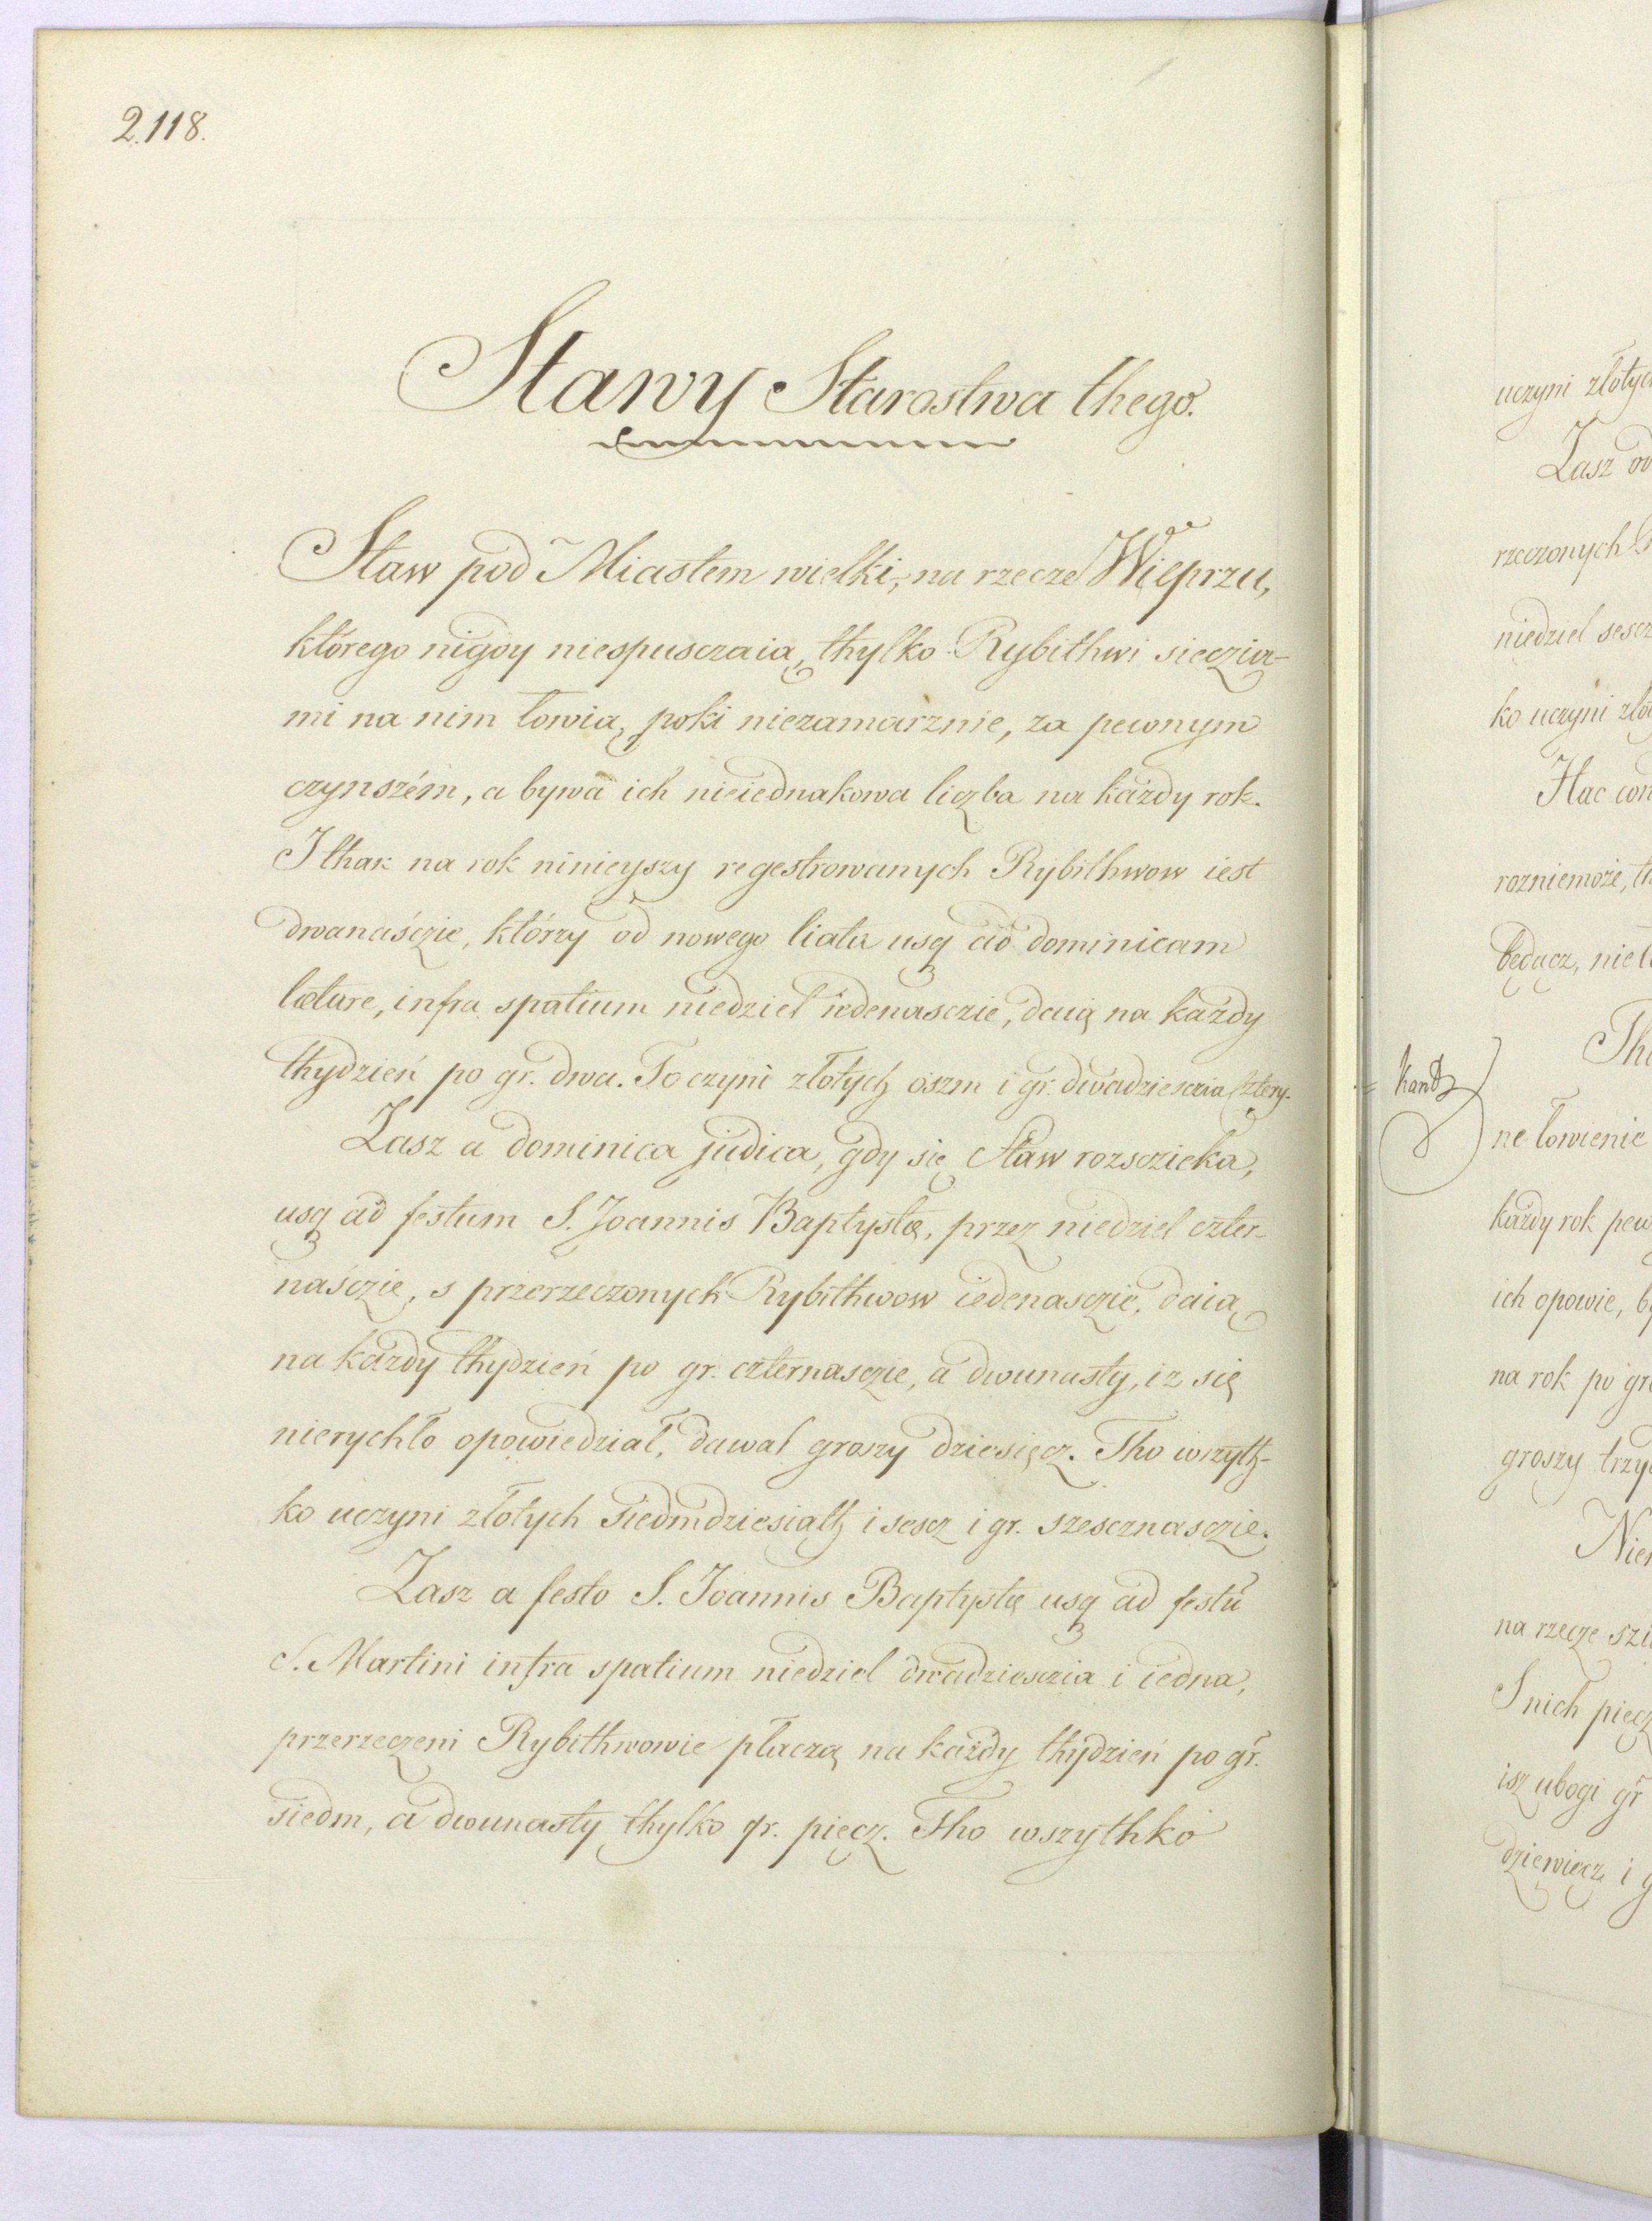 2.118.
Stawy Starostwa thego.
Staw pod Miastem wielki, na rzecze Wieprzu,
którego nigdy niespusczaią, thylko Rybithwi sieczia-
mi na nim łowią, poki niezamarznie, za pewnym
czynszém, a bywa ich nieiednakowa liczba na każdy rok.
I thak na rok ninieyszy regestrowanych Rybithwow iest
dwanaśczie, którzy od nowego liata usq ad dominicam
lætare, infra spatium niedziel iedenasczie, daią na każdy
thydzień po gr. dwa. To czyni złotych oszm i gr. dwadziesczia cztery.
Zasz a dominica judica, gdy się Staw rozsczieka,
usq ad festum S. Joannis Baptystę, przez niedziel czter-
naśczie, s przerzeczonych Rybithwow iedenasczie, daią
na każdy thydzień po gr. czternasczie, a dwunasty, iz się
nierychło opowiedział, dawał groszy dziesięcz. Tho wszytħ-
ko uczyni złotych siedmdziesiątħ i sescz i gr. szesznasczie.
Zasz a festo S. Joannis Baptystę usq ad festū
S. Martini infra spatium niedziel dwadziesczia i iedna,
przerzeczeni Rybithwowie płaczą na każdy thydzień po gr.
siedm, a dwunasty thylko gr. pięcz. Tho wszythko
uczyni złotych
Zasz od
rzeczonych
niedziel sescz
ko uczyni
Hac con
rozniemoże,
będącz, nie
Tho
ne łowienie
każdy rok pew
ich opowie,
na rok po gr
groszy trzy
Nie
na rzecze
S nich pięcz
isz ubogi gr
dziewięcz i